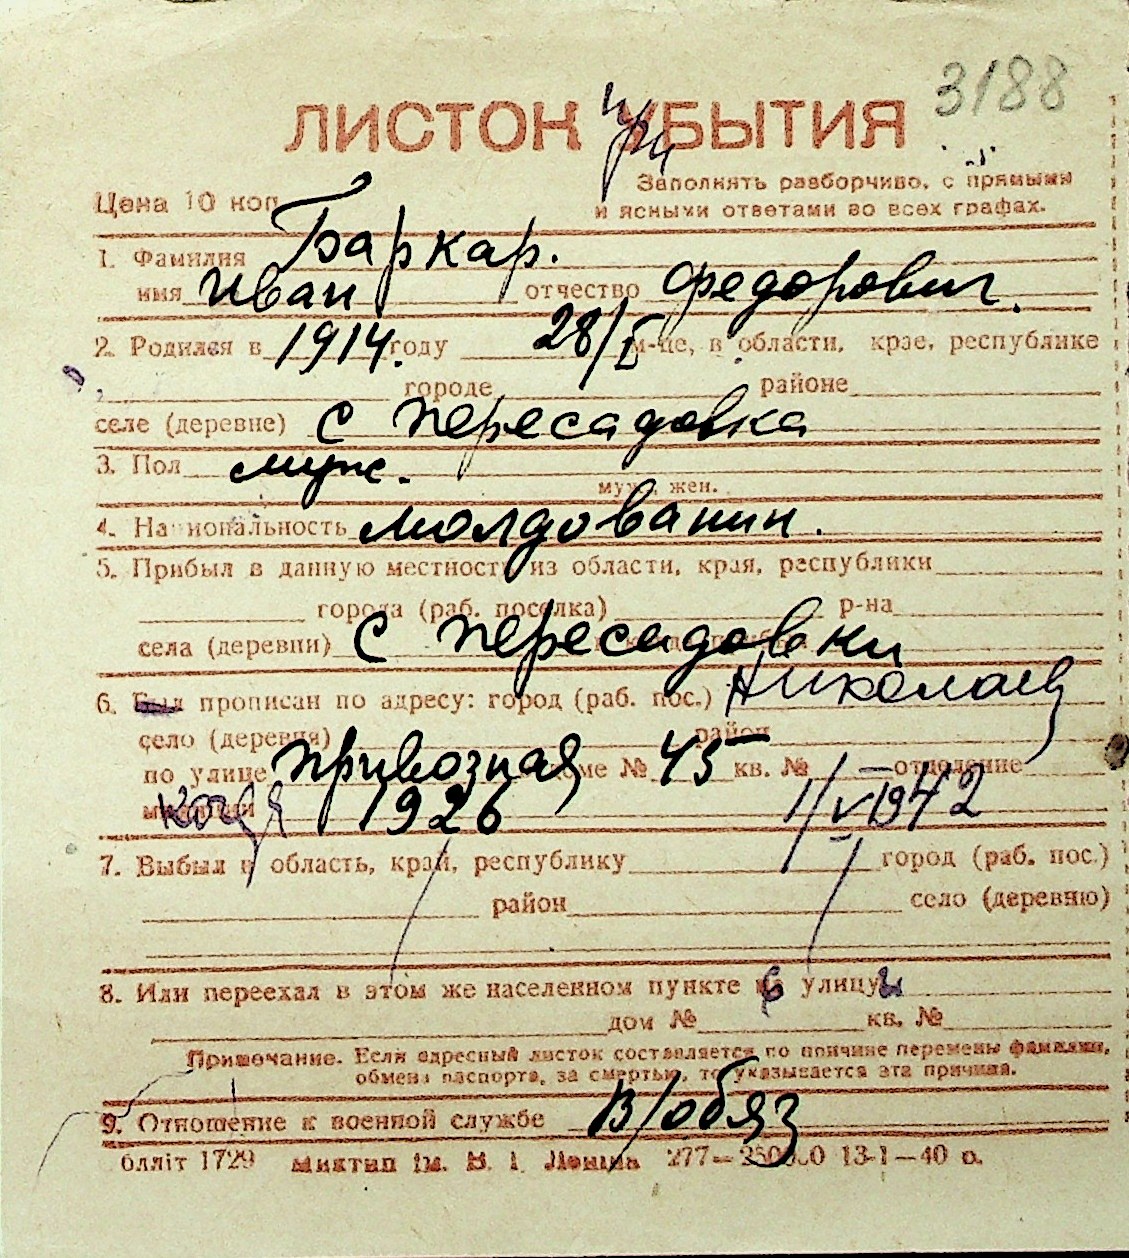 3188
ЛИСТОК при УБЫТИЯ
Заполнять разборчиво, с прямыми
Цена 10 коп. и ясными ответами во всех графах.
1. Фамилия Баркар.
имя Иван отчество Федорович.
2. Родился в 1914. году 28/I м-це, в области, крае, республике
городе районе
селе (деревне) с Пересадовка
3. Пол муж.
муж., жен.
4. Национальность молдованин.
5. Прибыл в данную местность из области, края, республики
города (раб. поселка) р-на
села (деревни) с Пересадовки
6. Был прописан по адресу: город (раб. пос.) Николаев
село (деревня) район
по улице Привозная доме № 45 кв. № — отделение
милиции когда 1926 1/V 1942
7. Выбыл в область, край, республику город (раб. пос.)
район село (деревню)
8. Или переехал в этом же населенном пункте с улицы
дом № кв. №
Примечание. Если адресный листок составляется по причине перемены фамилии,
обмена паспорта, за смертью, то указывается эта причина.
9. Отношение к военной службе В/обяз
блліт 1729 Миктип ім. В. І. Леніна 277—250000 13-1—40 о.